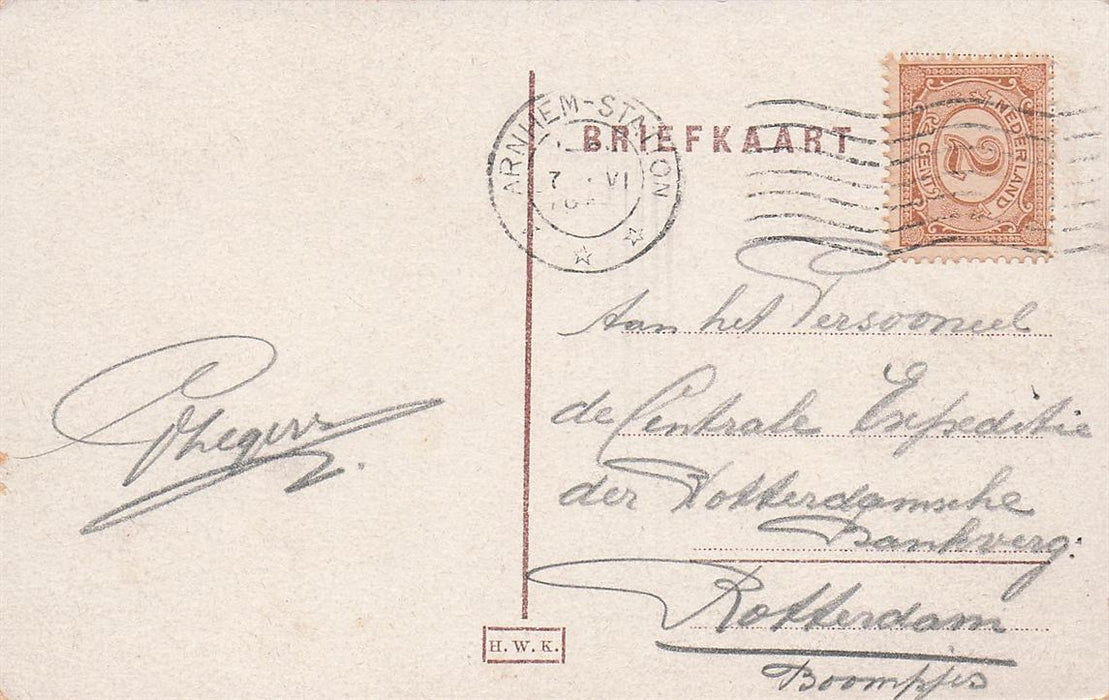 ARNHEM-STATION
7 VI
BRIEFKAART
NEDERLAND
2
CENT
Aan het Persooneel
de Centrale Expeditie
der Rotterdamsche
Bankverg:
Rotterdam
Boompjes
H. W. K.